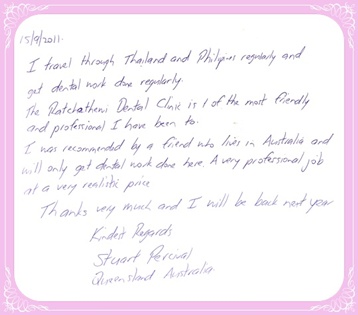 15/9/2011.
I travel through Thailand and Philipines regularly and
get dental work done regularly.
The Ratchathewi Dental Clinic is 1 of the most friendly
and professional I have been to.
I was recommended by a friend who lives in Australia and
will only get dental work done here. A very professional job
at a very realistic price
Thanks very much and I will be back next year
Kindest Regards
Stuart Percival
Queensland Australia